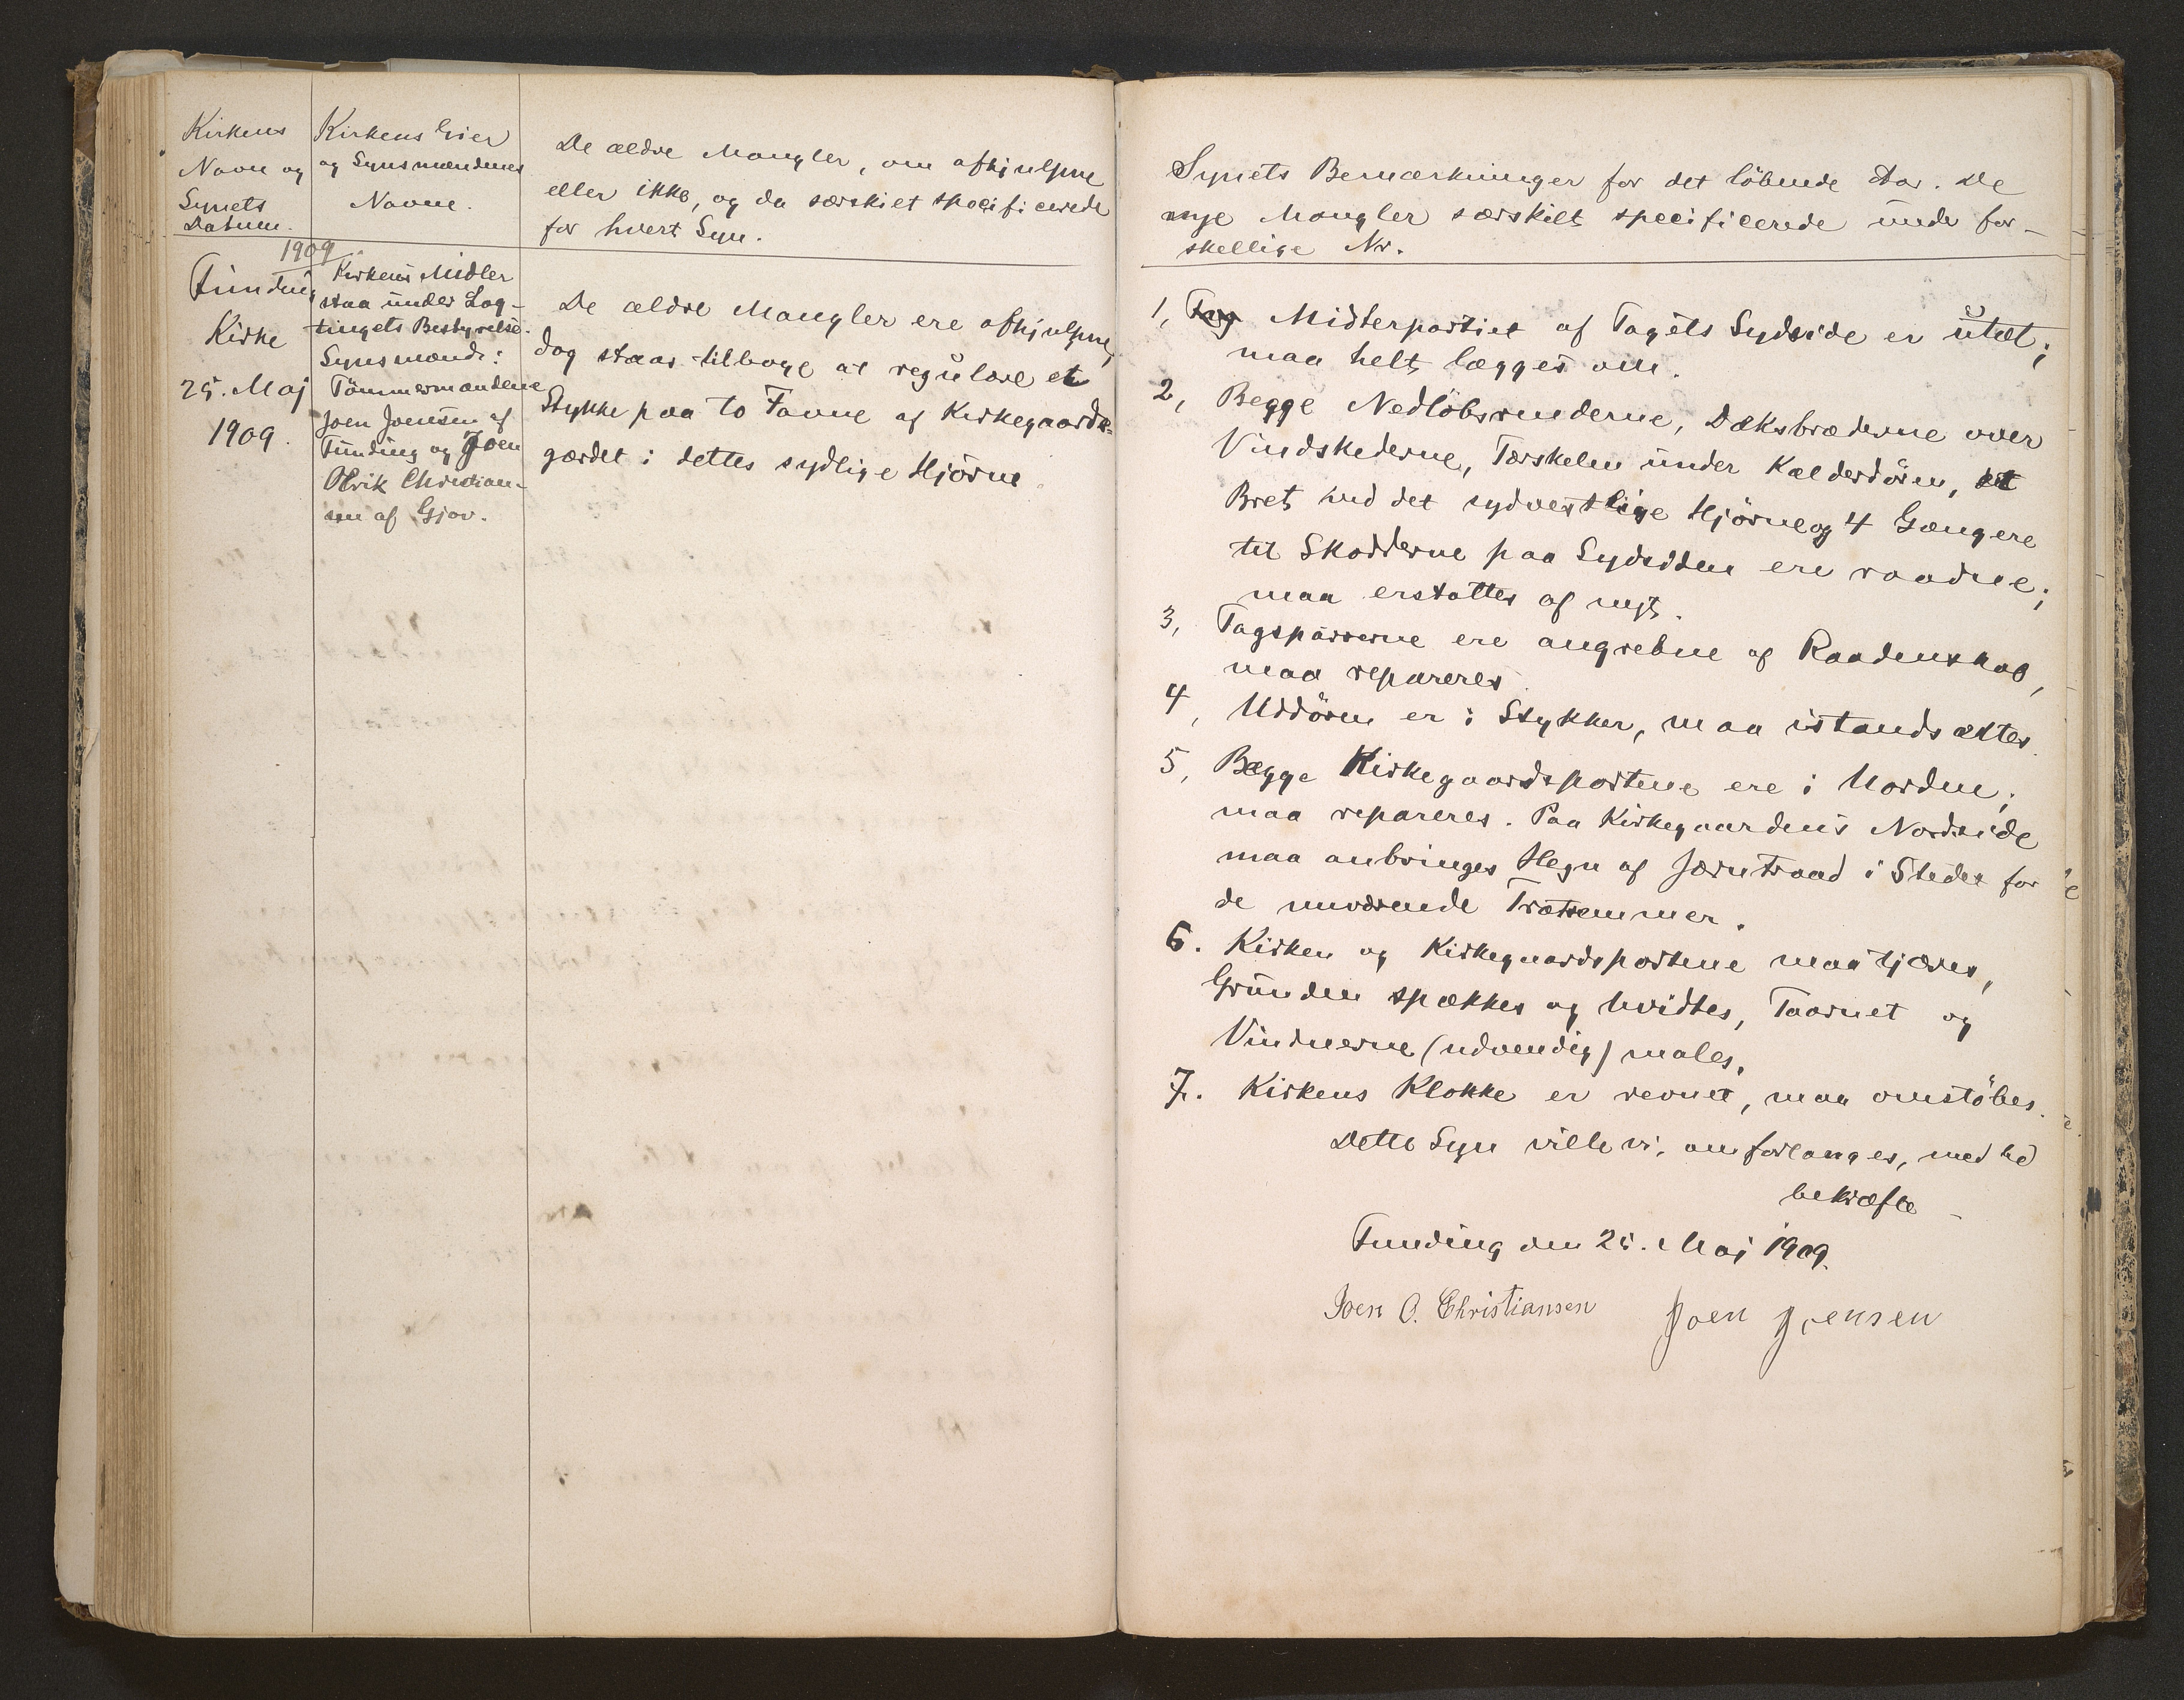 Kirkens
Navn og
Synets
Datum.
Kirkens Eier
og Synsmændenes
Navne.
De ældre Mangler, om afhjulpne
eller ikke, og da særskilt specificerede
for hvert Syn.
1909
Funding
Kirke
25. Maj
1909.
Kirkens Midler
staa under Lag-
tingets Bestyrelse.
Synsmænd:
Tömmermændene
Joen Joensen af
Funding og Joen
Olrik Christian-
sen af Gjov.
De ældre Mangler ere afhjulpne,
dog staar tilbage at regulere et
Stykke paa to Favne af Kirkegaards-
gærdet i dettes sydlige Hjörne
Synets Bemærkninger for det löbende Aar. De
nye Mangler særskilt specificerede under for-
skellige Nr.
1, Tag Midterpartiet af Tagets Sydside er utæt;
maa helt lægges om.
2, Begge Nedlöbsrenderne, Dæksbræderne over
Vindskederne, Tærskelen under Kælderdören, et
Bret ved det sydvestlige Hjörne og 4 Gængere
til Skodderne paa Sydsiden ere raadne;
maa erstattes af nyt.
3, Tagspærrerne ere angrebne af Raadenskab,
maa repareres
4, Uddören er i Stykker, maa istandsættes.
5, Begge Kirkegaardsportene ere i Uorden;
maa repareres. Paa Kirkegaardens Nordside
maa anbringes Hegn af Jærntraad i Stedet for
de nuværende Trætremmer.
6. Kirken og Kirkegaardsportene maa tjæres,
Grunden spækkes og hvidtes, Taarnet og
Vinduerne (udvendig) males.
7. Kirkens Klokke er revnet, maa omstöbes.
Dette Syn ville vi, om forlanges, med Ed
bekræfte
Funding den 25. Maj 1909.
Joen O. Christiansen Joen Joensen